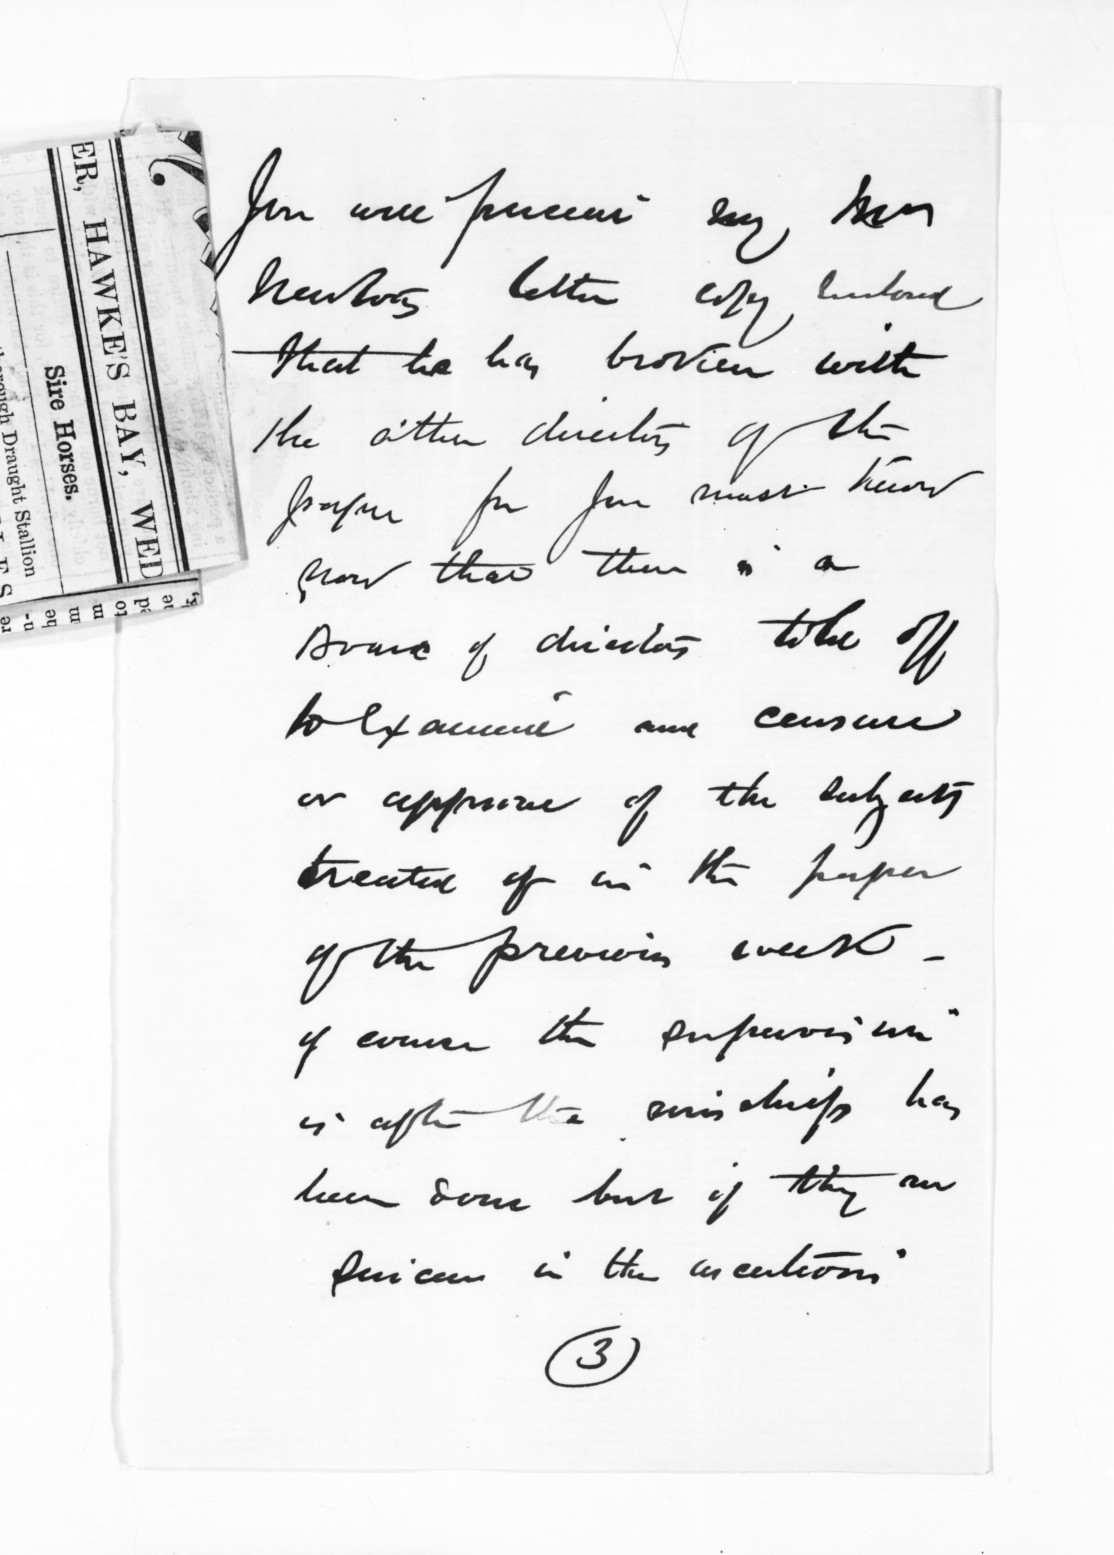 ER, HAWKE'S BAY, WED
Sire Horses.
orough Draught Stallion
You will perceive by
letter copy enclosed
that he has broken with
the other directors of the
paper for you must know
now that there is a
Board of directors
to examine and censure
or approve of the subjects
treated of in the paper
of the previous week -
of course the supervision
is after the mischief has
been done but if they are
sincere in the assertions
3